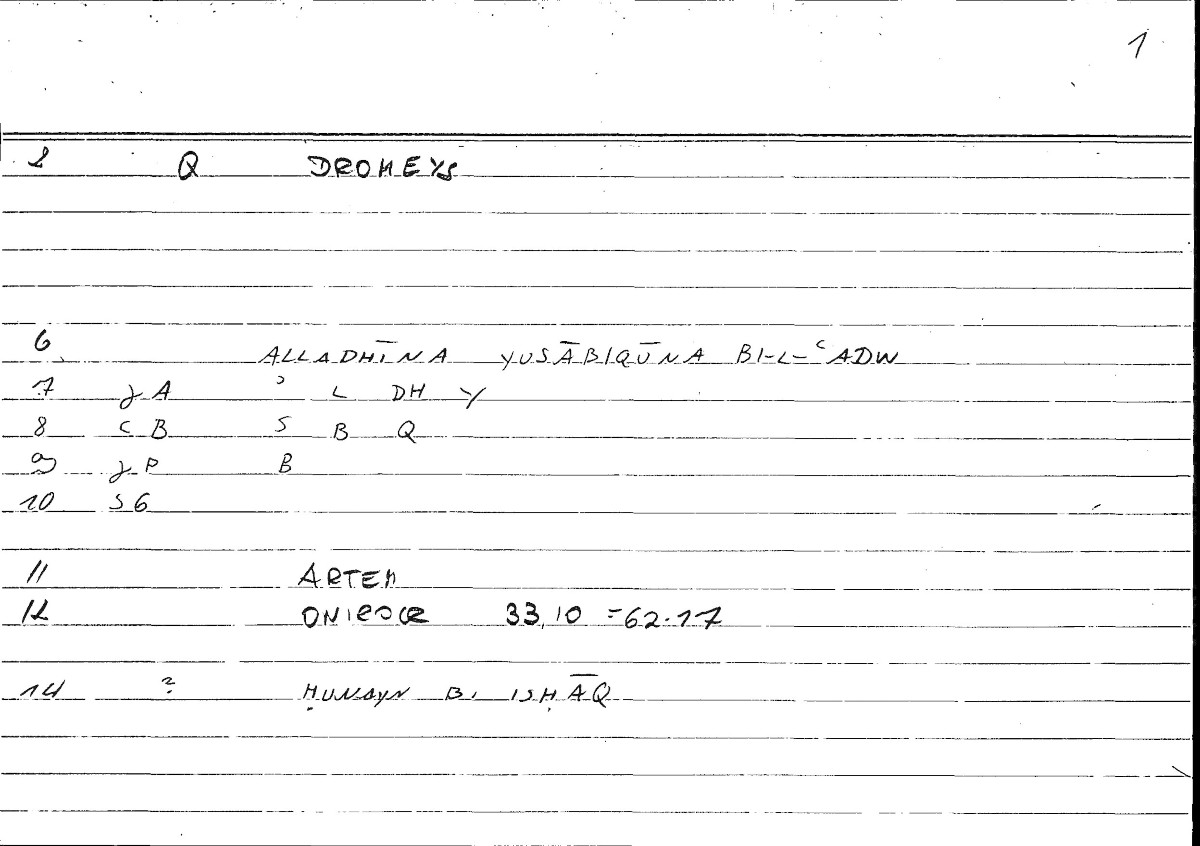 1
2 Q DROMEYS
6 ALLADHĪNA YUSĀBIQŪNA BI-L-ʿADW
7 JA ʾ L DH Y
8 CB S B Q
9 JP B
10 SG
11 ARTEM
12 ONIROCR 33,10 = 62.17
14 ? ḤUNAYN B. ISḤĀQ